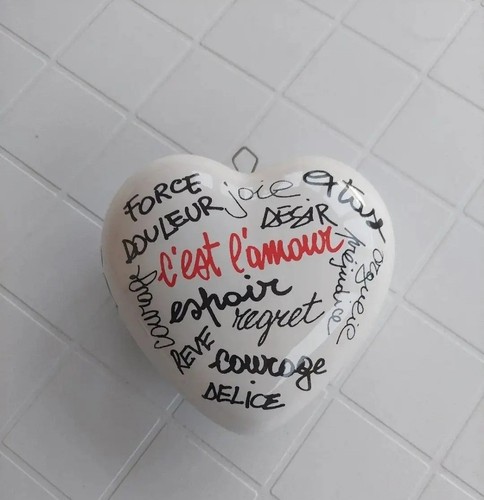 FORCE joie extase
DOULEUR DESIR
c'est l'amour
préjudice
orgueil
courage
espoir
regret
REVE
courage
DELICE